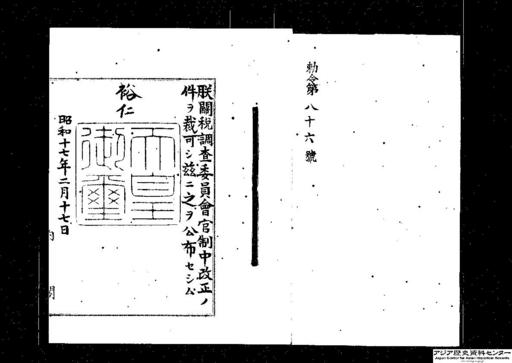 勅令第八十六號
朕關税調査委員會官制中改正ノ
件ヲ裁可シ茲ニ之ヲ公布セシム
裕仁
天皇
御璽
昭和十七年二月十七日
内閣
アジア歴史資料センター
Japan Center for Asian Historical Records